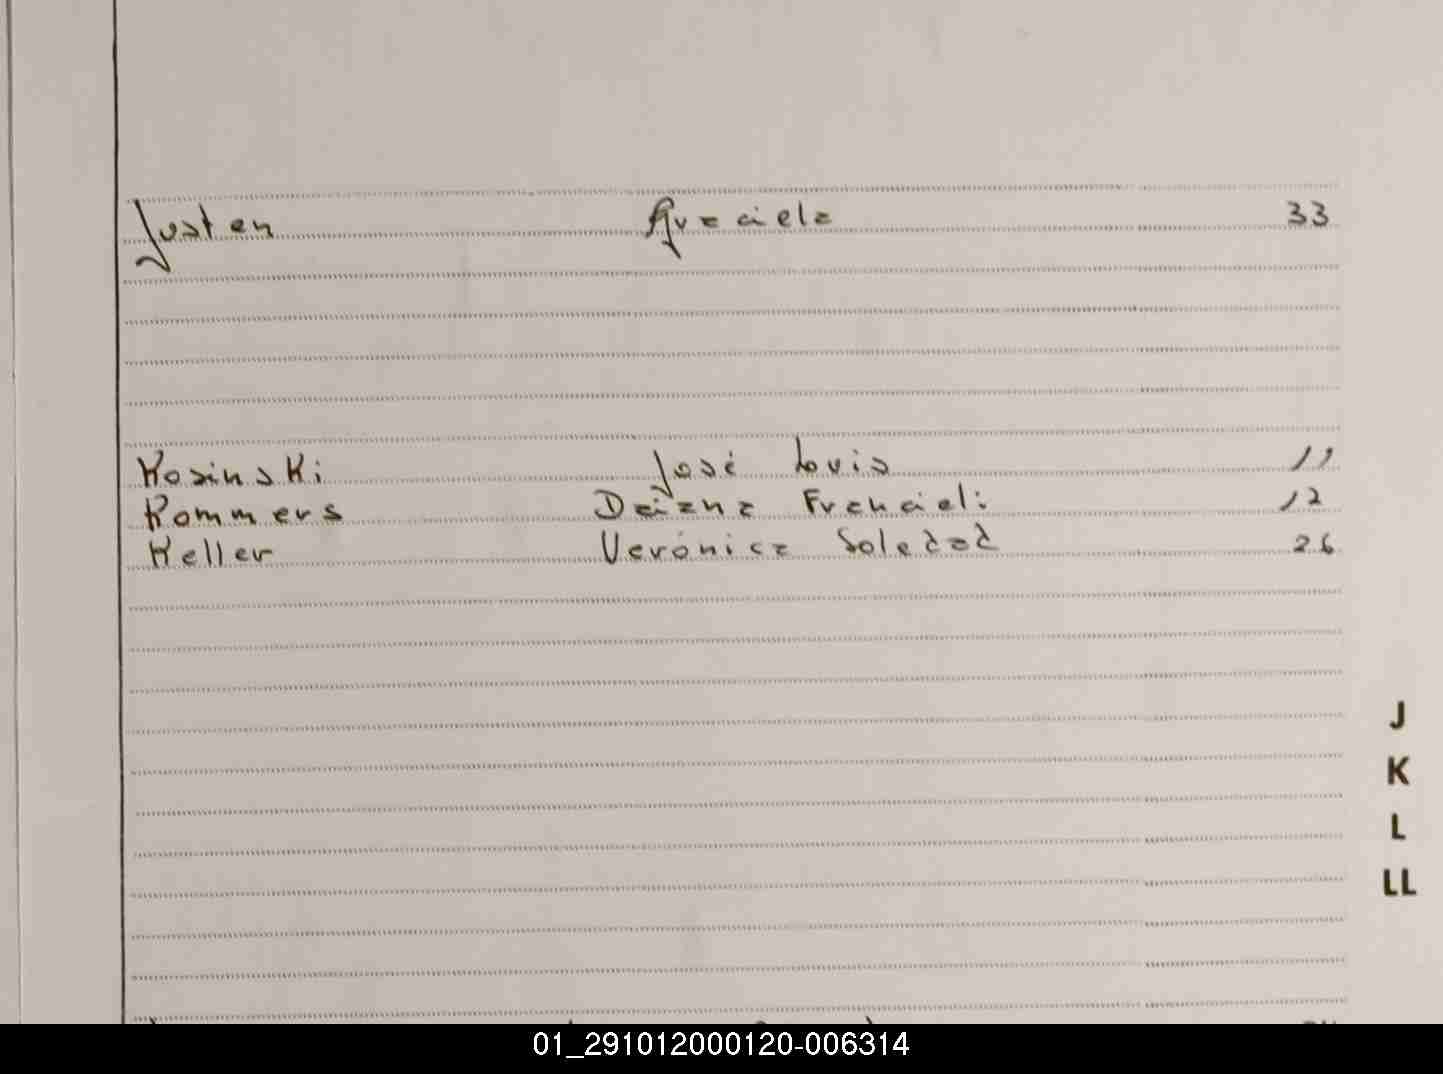 Justen Graciela 33
Kosinski José Luis 11
Kommers Daiana Francieli 12
Keller Verónica Soledad 26
J
K
L
LL
01_291012000120-006314